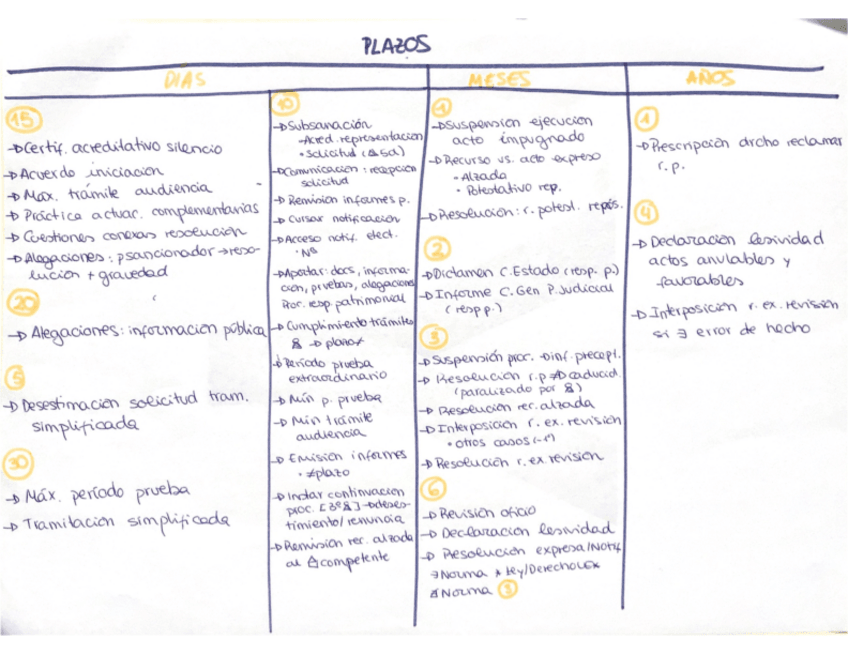 PLAZOS
DÍAS
15
→ Certif. acreditativo silencio
→ Acuerdo iniciación
→ Max. trámite audiencia
→ Práctica actuac. complementarias
→ Cuestiones conexas resolución
→ Alegaciones: psancionador → reso-
lución + gravedad
20
→ Alegaciones: información pública
5
→ Desestimación solicitud tram.
simplificada
30
→ Máx. período prueba
→ Tramitación simplificada
10
→ Subsanación
- Acred. representación
• Solicitud
→ Comunicación: recepción
solicitud
→ Remisión informes p.
→ Cursar notificación
→ Acceso notif. elect.
• NO
→ Aportar: docs, informa-
ción, pruebas, alegaciones
Proc. resp. patrimonial
→ Cumplimiento trámites
& → plazo≠
→ Período prueba
extraordinario
→ Mín p. prueba
→ Mín trámite
audiencia
→ Emisión informes
• ≠plazo
→ Instar continuación
proc. [3º&] → desis-
timiento/renuncia
→ Remisión rec. alzada
al competente
MESES
1
→ Suspensión ejecución
acto impugnado
→ Recurso vs. acto expreso
• Alzada
• Potestativo rep.
→ Resolución: r. potest. repos.
2
→ Dictamen C. Estado (resp. p.)
→ Informe C. Gen P. Judicial
(resp p.)
3
→ Suspensión proc. → inf. precept.
→ Resolución r.p ≠ caducid.
(paralizado por &)
→ Resolución rec. alzada
→ Interposición r. ex. revisión
• otros casos
→ Resolución r. ex. revisión
6
→ Revisión oficio
→ Declaración lesividad
→ Resolución expresa/Notif
∃ Norma * Ley/Derecho UE
∄ Norma 3
AÑOS
1
→ Prescripción drcho reclamar
r. p.
4
→ Declaración lesividad
actos anulables y
favorables
→ Interposición r. ex. revisión
si ∃ error de hecho